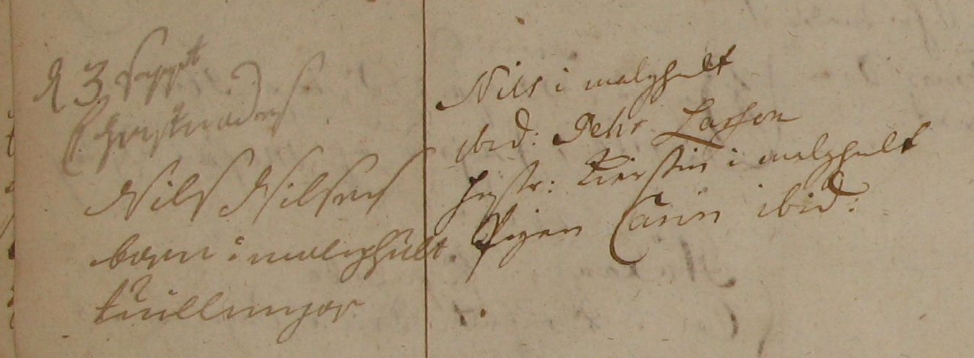 d 3 Sept
Christnades
Nils Nilsons
barn i malghult
tuillingar
Nils i malghult
ibid: Pehr Larson
hustr: Kierstin i malghult
Pigan Carin ibid: